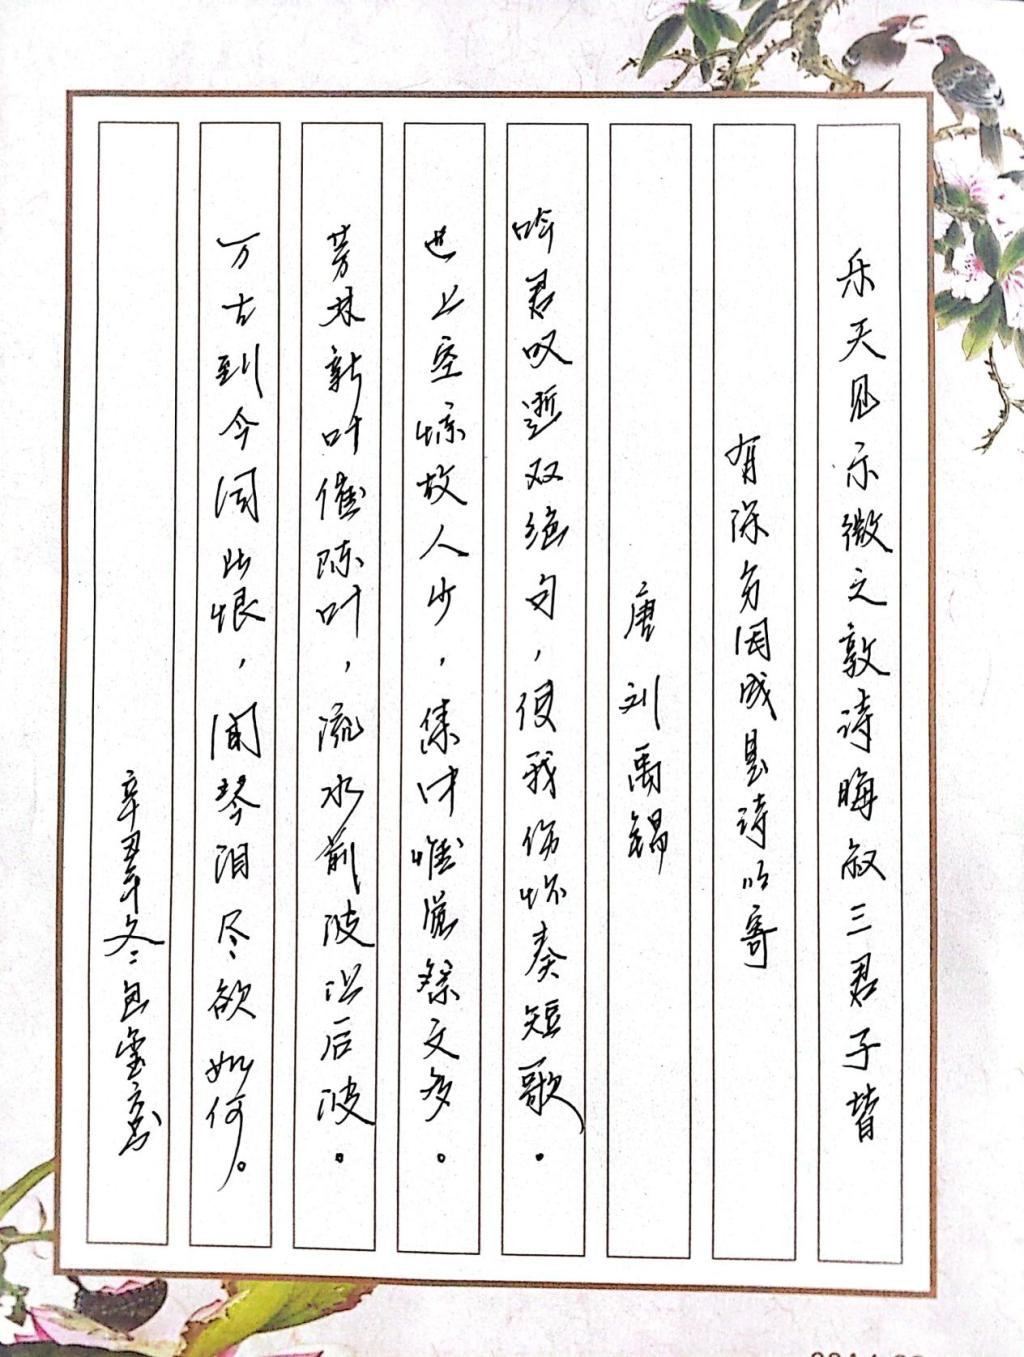 乐天见示微之敦诗晦叔三君子皆
有深分因成是诗以寄
唐 刘禹锡
吟君叹逝双绝句，使我伤怀奏短歌。
世上空惊故人少，集中唯觉祭文多。
芳林新叶催陈叶，流水前波让后波。
万古到今同此恨，闻琴泪尽欲如何。
辛丑年冬